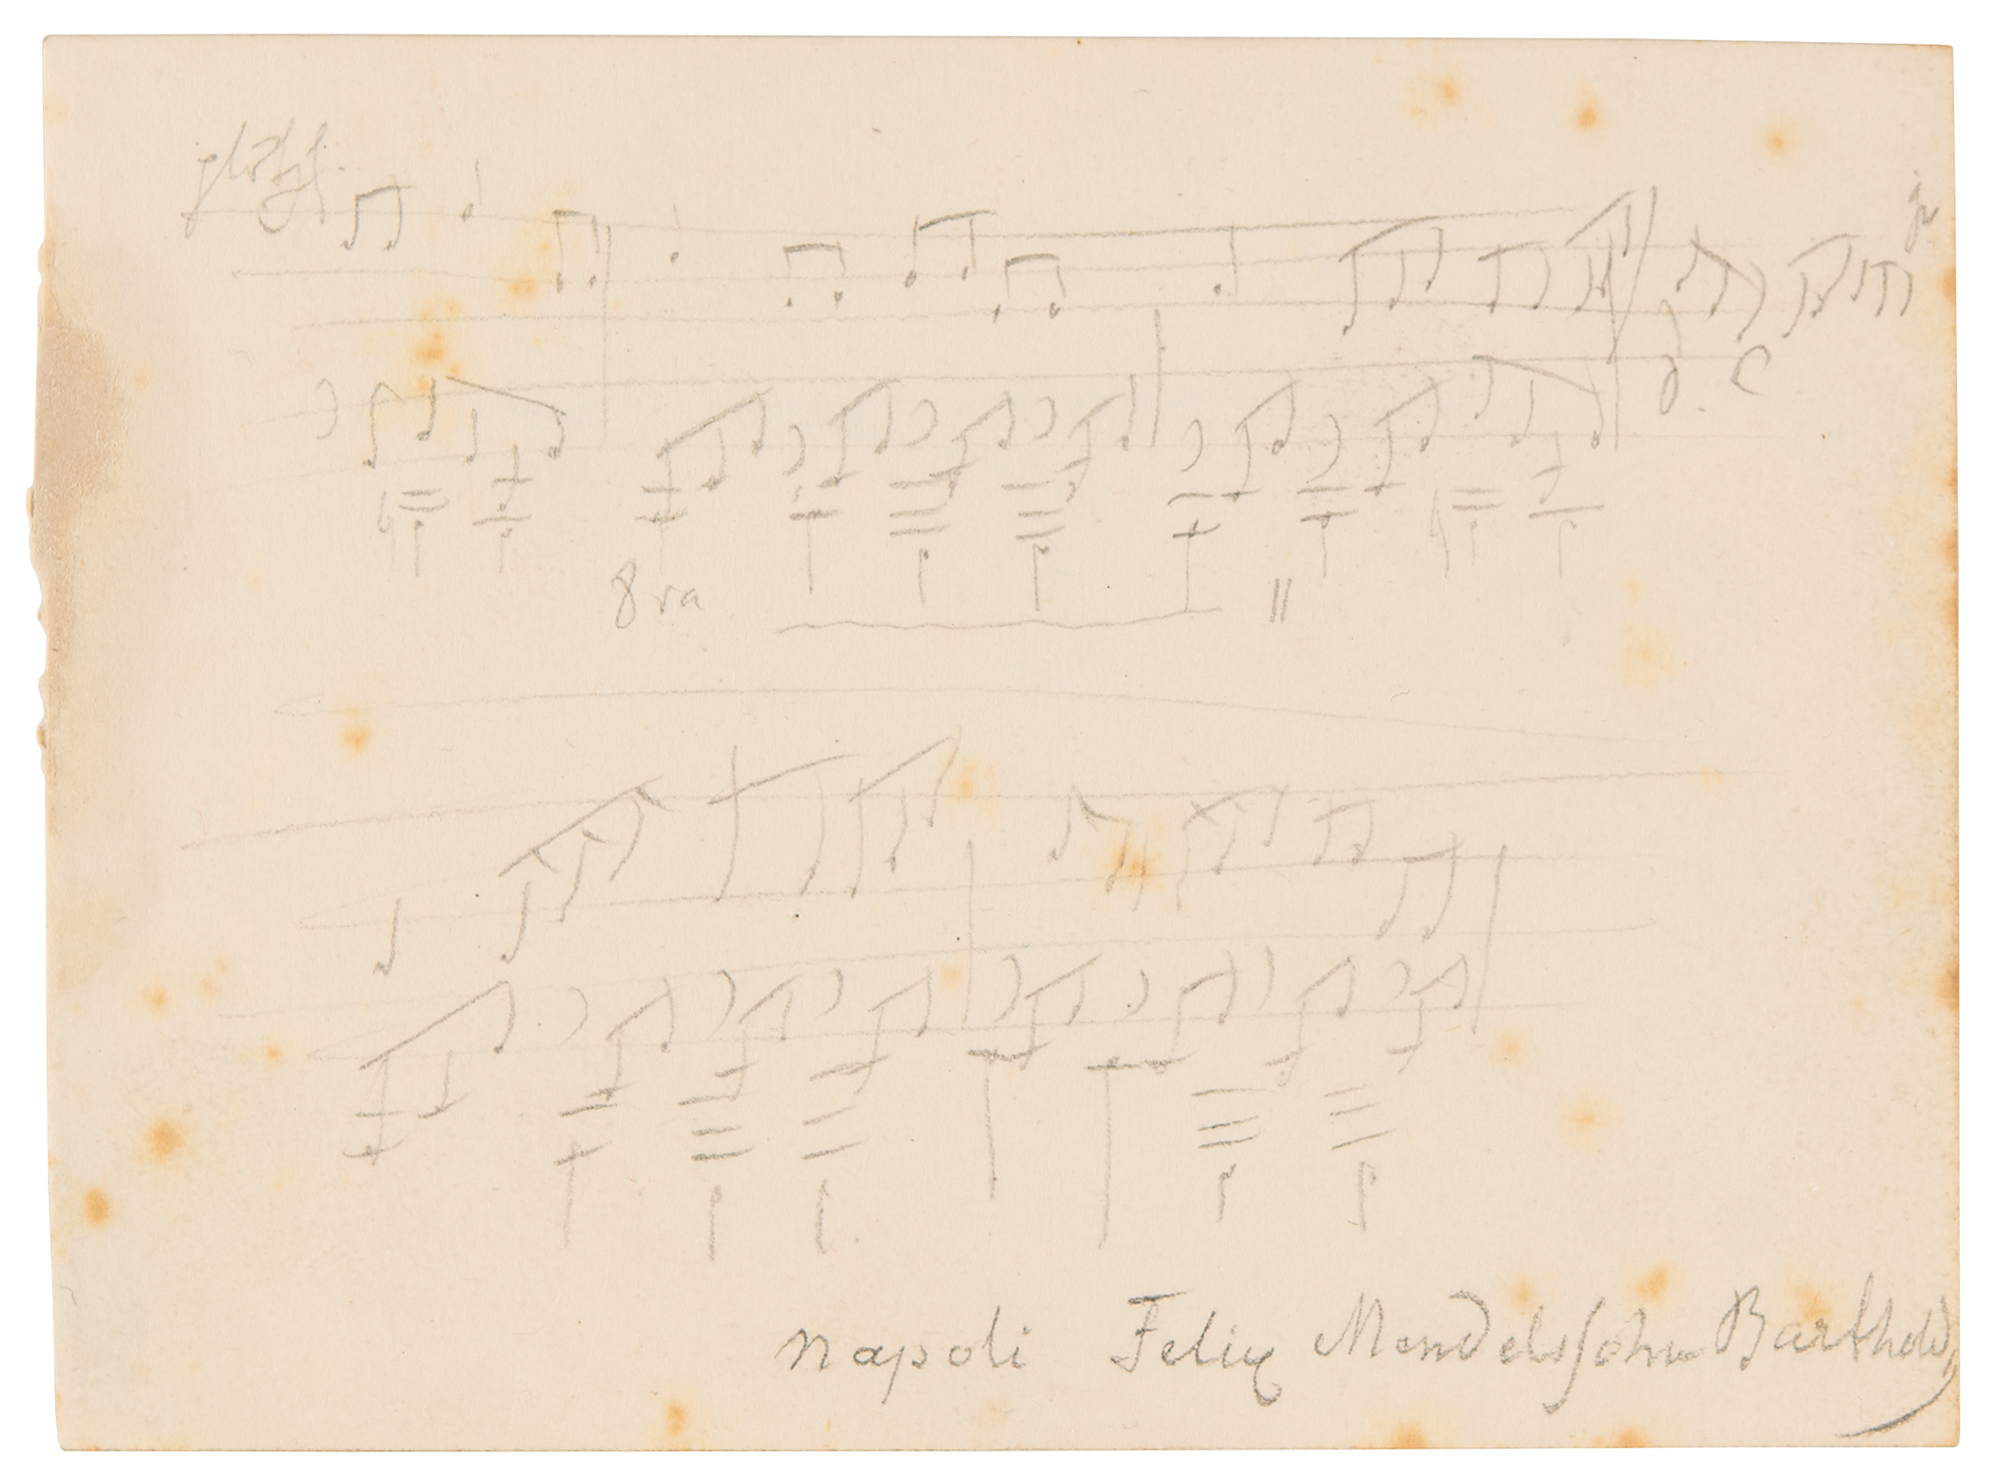 8va
Napoli Felix Mendelssohn Bartholdy